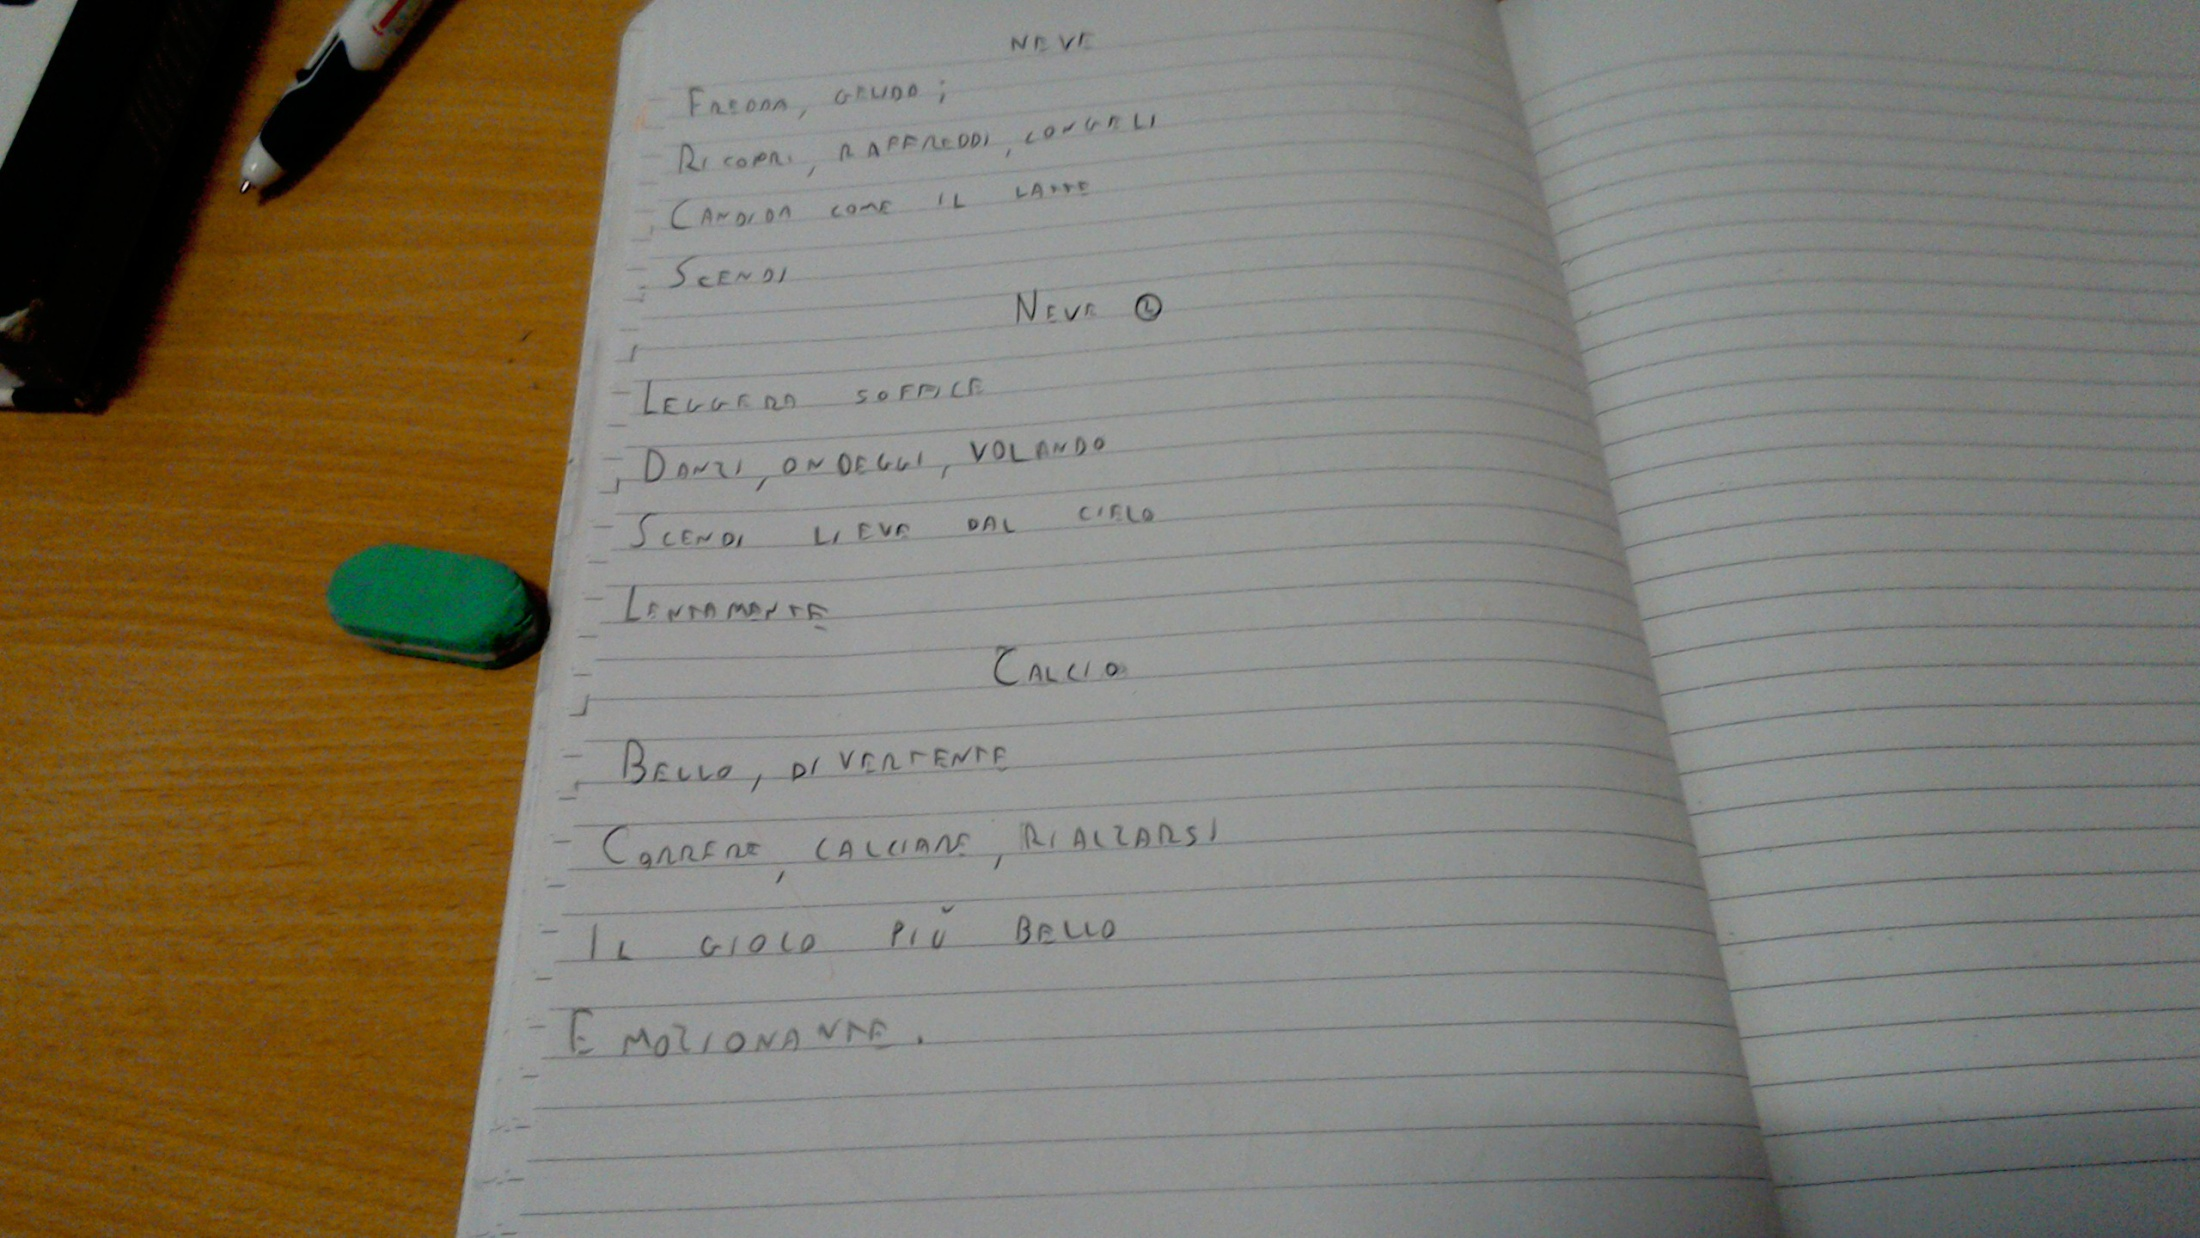 NEVE
FREDDA, GELIDA;
RICOPRI, RAFFREDDI, CONGELI
CANDIDA COME IL LATTE
SCENDI
NEVE 2
LEGGERA SOFFICE
DANZI, ONDEGGI, VOLANDO
SCENDI LIEVE DAL CIELO
LENTAMENTE
CALCIO
BELLO, DIVERTENTE
CORRERE, CALCIARE, RIALZARSI
IL GIOCO PIÙ BELLO
EMOZIONANTE.